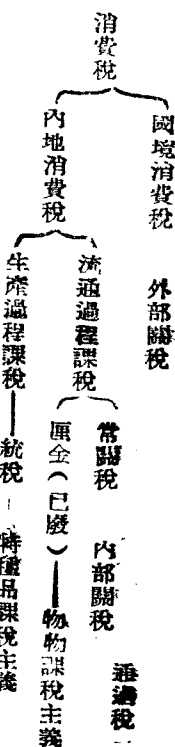 消費稅
國境消費稅
外部關稅
內地消費稅
流通過程課稅
常關稅
內部關稅
通過稅
厘金（已廢）——物物課稅主義
生產過程課稅——統稅——特種品課稅主義